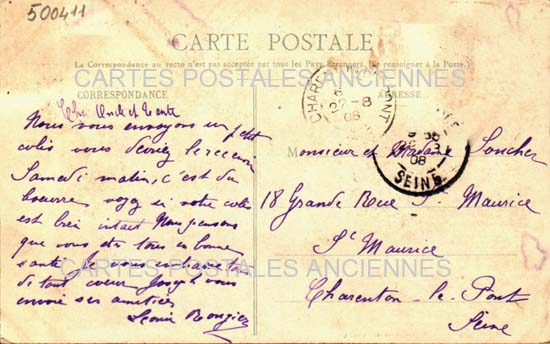 500411
CARTE POSTALE
La Correspondance au recto n'est pas acceptée par tous les Pays Étrangers. (Se renseigner à la Poste.)
CARTES POSTALES ANCIENNES
CORRESPONDANCE
ADRESSE
Cher Oncle et Tante
Nous vous envoyons un petit
colis vous devriez le recevoir
Samedi matin, c'est du
beurre voyez si votre colis
est bien intact Nous pensons
que vous êtes tous en bonne
santé Je vous embrasse
de tout coeur Joseph vous
envoie ses amitiés
Léonie
CHARENTON LE PONT
22-8
08
SEINE
Monsieur et Madame
18 Grande Rue St Maurice
St Maurice
Charenton-le-Pont
Seine
CARTES POSTALES ANCIENNES